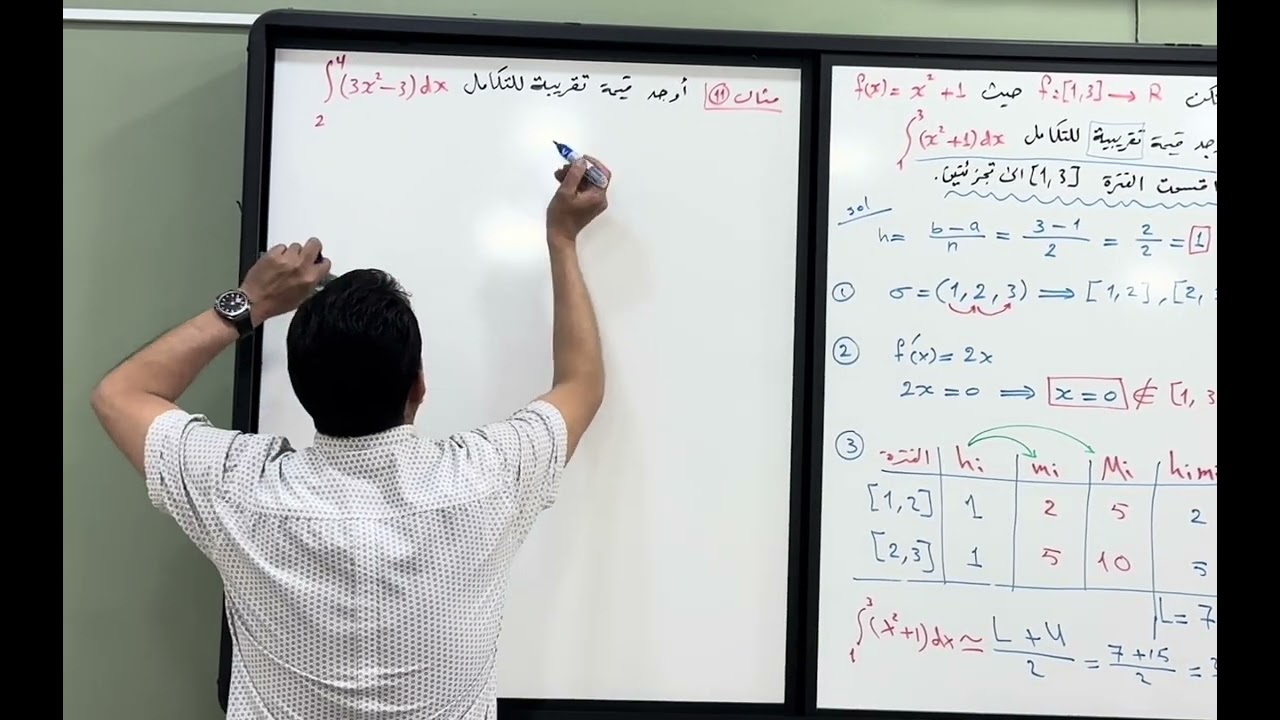 مثال (11) أوجد قيمة تقريبية للتكامل ∫₂⁴ (3x² − 3) dx
f(x) = x² + 1 حيث f: [1,3] → R
قيمة تقريبية للتكامل ∫₁³ (x² + 1) dx
قسمت الفترة [1,3] الى تجزئتين.
sol
h = (b − a)/n = (3 − 1)/2 = 2/2 = 1
① σ = (1, 2, 3) ⟹ [1,2], [2,
② f′(x) = 2x
2x = 0 ⟹ x = 0 ∉ [1, 3
③ الفترة hi mi Mi himi
[1,2] 1 2 5 2
[2,3] 1 5 10 5
L = 7
∫₁³ (x² + 1) dx ≃ (L + U)/2 = (7 + 15)/2 =